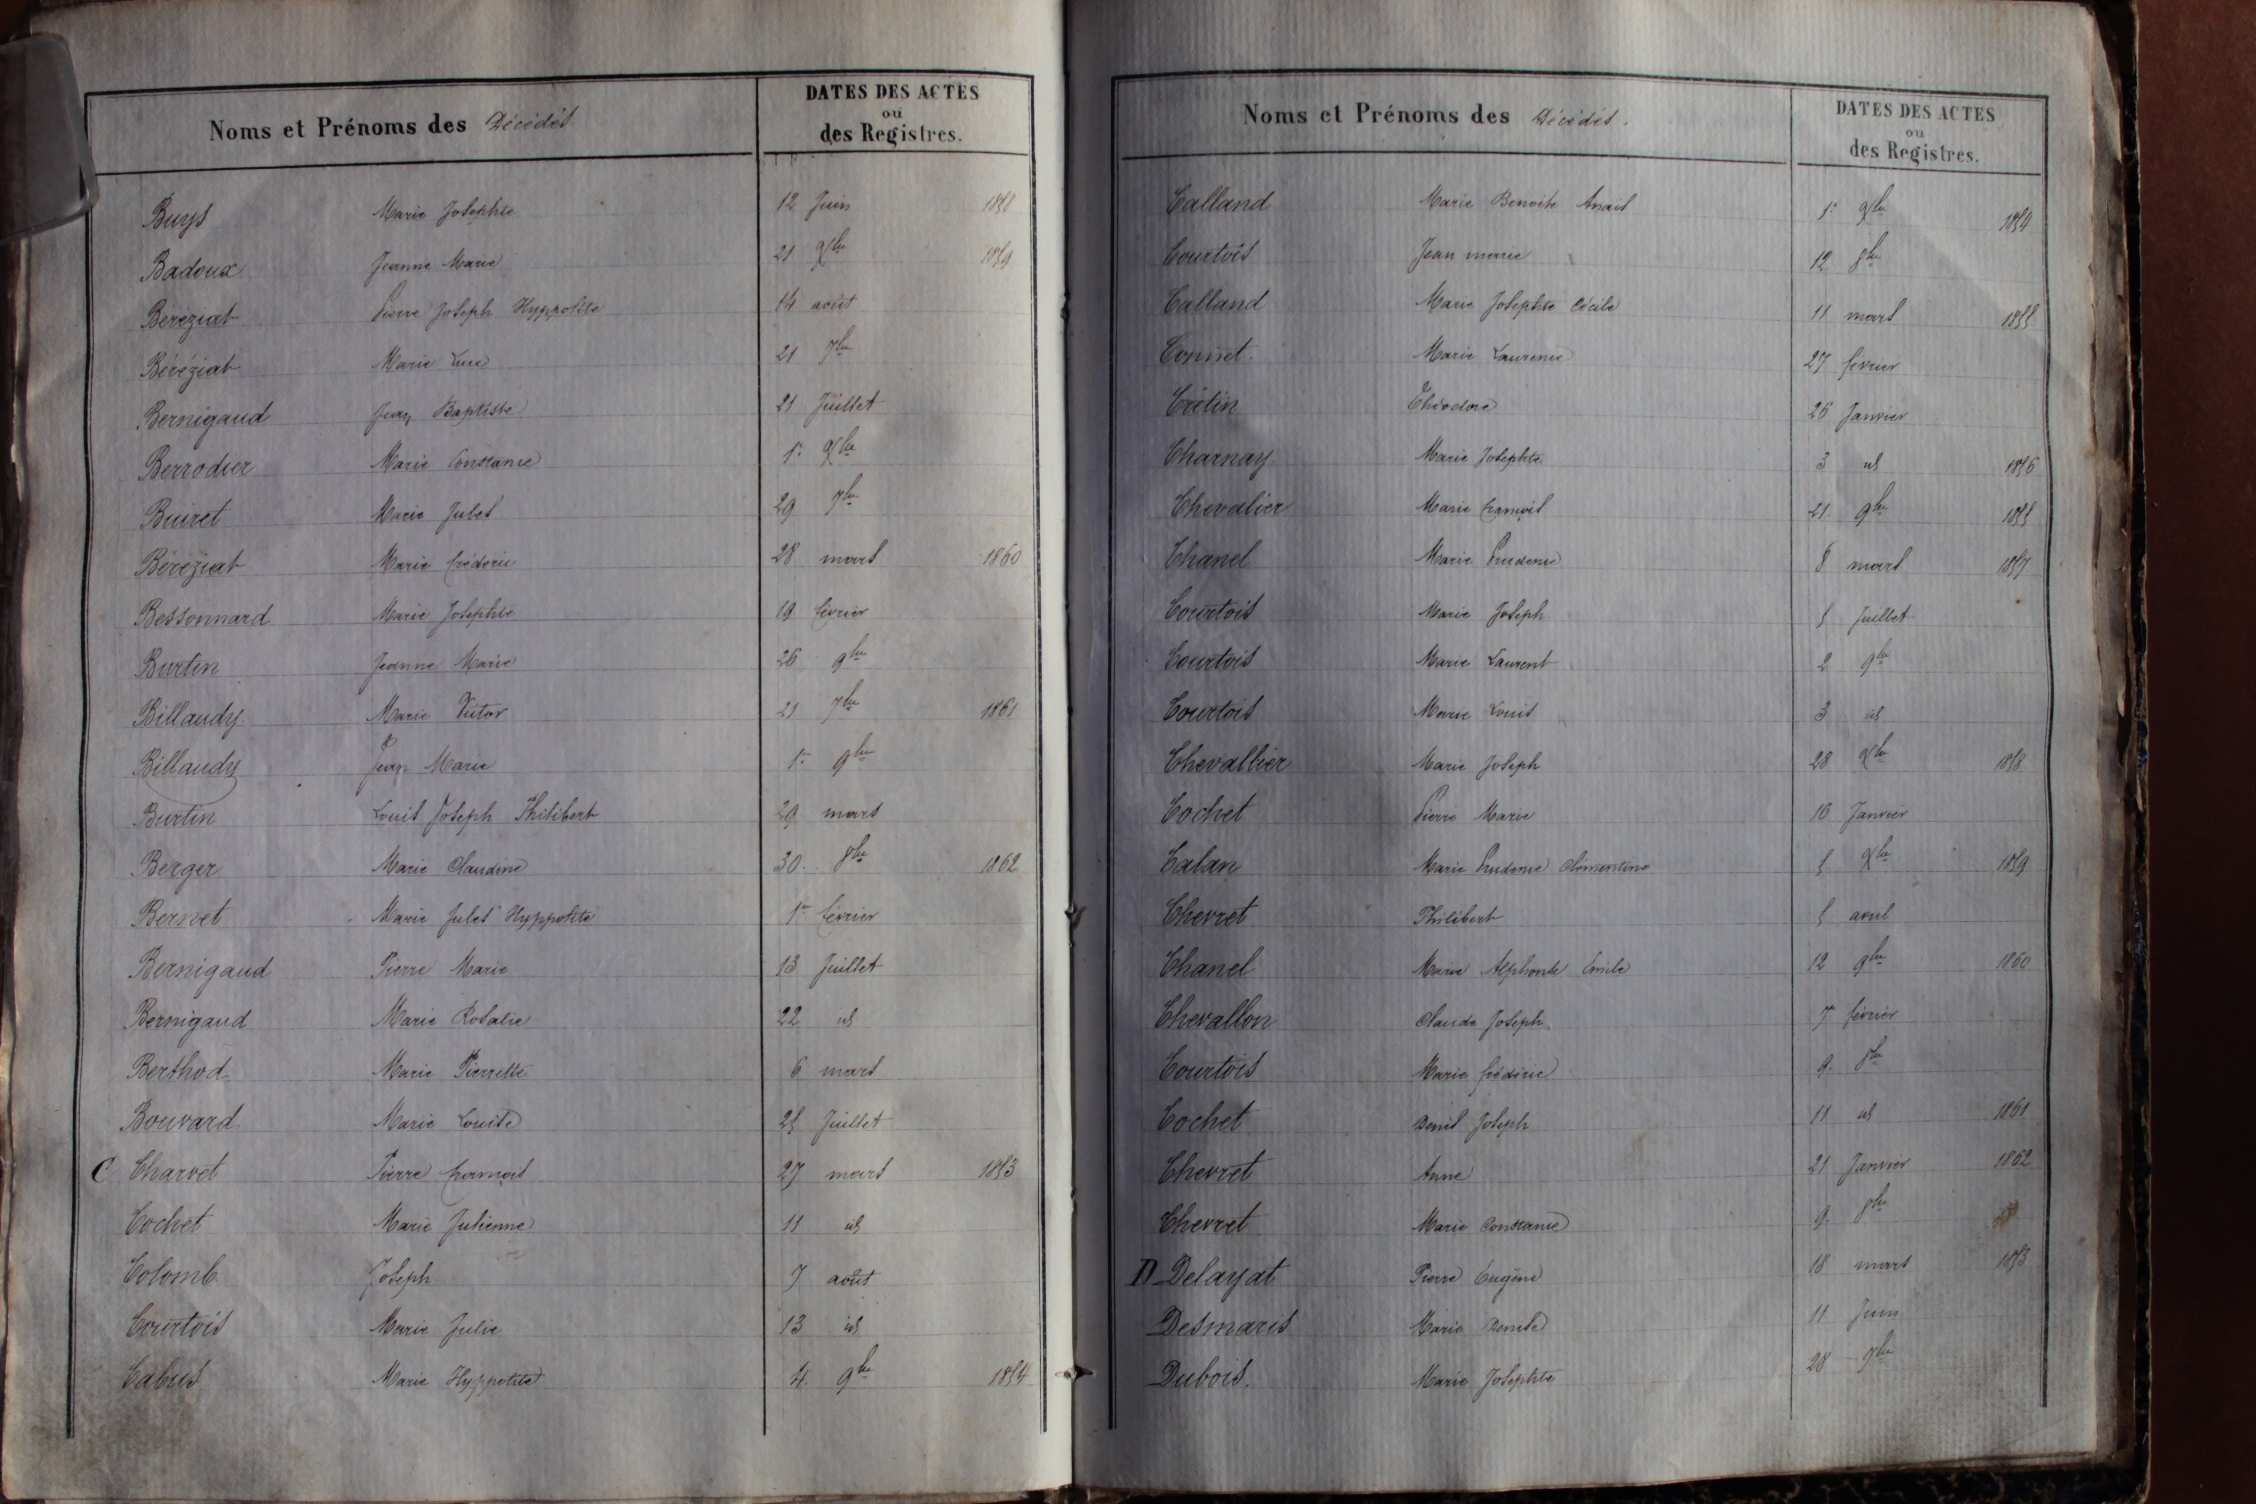 Noms et Prénoms des Décédés
DATES DES ACTES
ou
des Registres.
Buys Marie Josephte 12 Juin 1858
Badoux Jeanne Marie 21 Xbre 1859
Béréziat Pierre Joseph Hyppolite 14 août
Béréziat Marie Luce 21 7bre
Bernigaud Jean Baptiste 21 Juillet
Berrodier Marie Constance 1er Xbre
Buiret Marie Jules 29 7bre
Béréziat Marie frédéric 28 mars 1860
Bessonnard Marie Josephte 19 février
Burtin Jeanne Marie 26 9bre
Billaudy Marie Victor 21 7bre 1861
Billaudy Jean Marie 1er 9bre
Burtin Louis Joseph Philibert 29 mars
Berger Marie Claudine 30 8bre 1862
Bernet Marie Jules Hyppolite 1er février
Bernigaud Pierre Marie 13 Juillet
Bernigaud Marie Rosalie 22 id
Berthod Marie Pierrette 6 mars
Bouvard Marie Louise 25 Juillet
C Charvet Pierre françois 27 mars 1853
Cochet Marie Julienne 11 id
Colomb Joseph 7 août
Courtois Marie Julie 13 id
Cabus Marie Hyppolite 4 9bre 1854
Noms et Prénoms des Décédés.
DATES DES ACTES
ou
des Registres.
Calland Marie Benoite Anais 1er Xbre 1854
Courtois Jean marie 12 8bre
Calland Marie Josephte Cécile 11 mars 1855
Connet Marie Laurence 27 février
Crétin Théodore 26 Janvier
Charnay Marie Josephte 3 id 1856
Chevalier Marie françois 21 9bre 1855
Chanel Marie Prudence 8 mars 1857
Courtois Marie Joseph 5 Juillet
Courtois Marie Laurent 2 9bre
Courtois Marie Louis 3 id
Chevallier Marie Joseph 28 Xbre 1858
Cochet Pierre Marie 16 Janvier
Calan Marie Prudence Clémentine 5 Xbre 1859
Chevret Philibert 5 avril
Chanel Marie Alphonse Emile 12 9bre 1860
Chevallon Claude Joseph 7 février
Courtois Marie frédéric 9 8bre
Cochet Denis Joseph 11 id 1861
Chevret Anne 21 Janvier 1862
Chevret Marie Constance 9 8bre
D Delayat Pierre Eugène 18 mars 1853
Desmaris Marie Denise 11 Juin
Dubois Marie Josephte 28 9bre